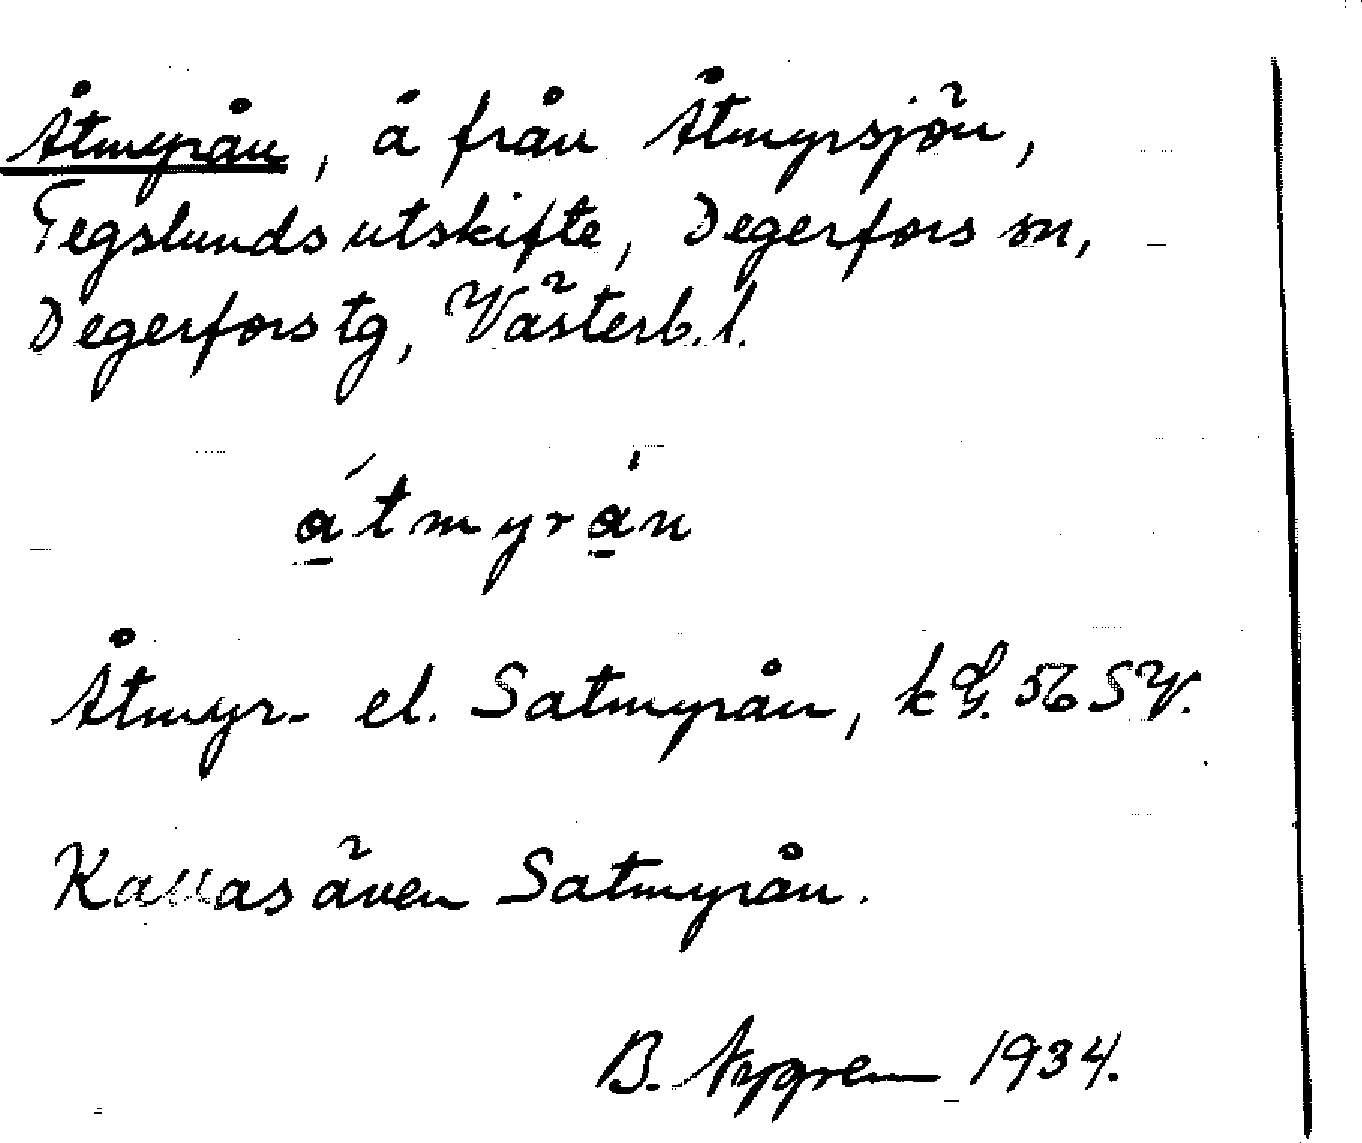 Åtmyrån, å från Åtmyrsjön,
Tegslunds utskifte, Degerfors sn,
Degerfors tg, Västerb. l.
á̲tmyra̲̍n
Åtmyr- el. Satmyrån, kG. 56 SV.
Kallas även Satmyrån.
B. Nygren 1934.